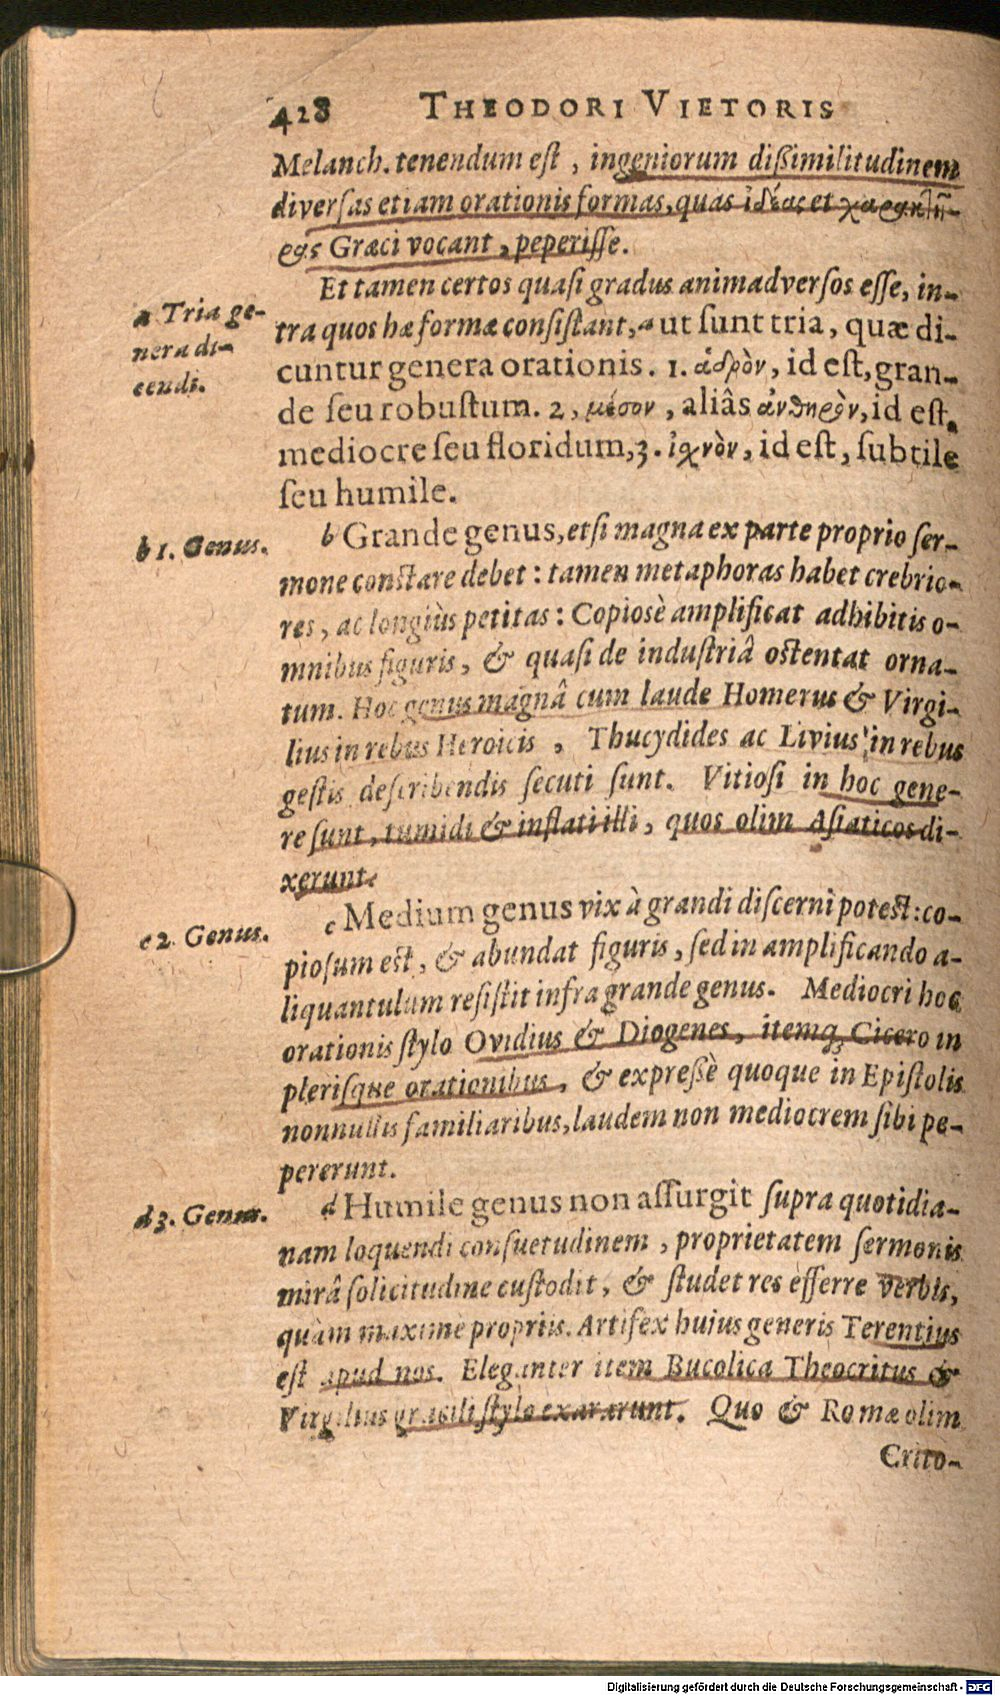 428 THEODORI VIETORIS
Melanch. tenendum est, ingeniorum dißimilitudinem
diversas etiam orationis formas, quas ἰδέας et χαρακτῆ-
ρας Græci vocant, peperisse.
Et tamen certos quasi gradus animadversos esse, in-
a Tria ge-
nera di-
cendi.
tra quos hæ formæ consistant, a ut sunt tria, quæ di-
cuntur genera orationis. 1. ἁδρὸν, id est, gran-
de seu robustum. 2, μέσον, aliâs ἀνθηρὸν, id est,
mediocre seu floridum, 3. ἰχνὸν, id est, subtile
seu humile.
b 1. Genus.
b Grande genus, etsi magna ex parte proprio ser-
mone constare debet: tamen metaphoras habet crebrio-
res, ac longiùs petitas: Copiosè amplificat adhibitis o-
mnibus figuris, & quasi de industriâ ostentat orna-
tum. Hoc genus magnâ cum laude Homerus & Virgi-
lius in rebus Heroicis, Thucydides ac Livius in rebus
gestis describendis secuti sunt. Vitiosi in hoc gene-
re sunt, tumidi & inflati illi, quos olim Asiaticos di-
xerunt.
c 2. Genus.
c Medium genus vix à grandi discerni potest: co-
piosum est, & abundat figuris, sed in amplificando a-
liquantulum resistit infra grande genus. Mediocri hoc
orationis stylo Ovidius & Diogenes, itemq; Cicero in
plerisque orationibus, & expreßè quoque in Epistolis
nonnullis familiaribus, laudem non mediocrem sibi pe-
pererunt.
d 3. Genus.
d Humile genus non assurgit supra quotidia-
nam loquendi consuetudinem, proprietatem sermonis
mirâ solicitudine custodit, & studet res efferre verbis,
quàm maxime propriis. Artifex huius generis Terentius
est apud nos. Eleganter item Bucolica Theocritus &
Virgilius gracili stylo exararunt. Quo & Romæ olim
Crito-
Digitalisierung gefördert durch die Deutsche Forschungsgemeinschaft - DFG